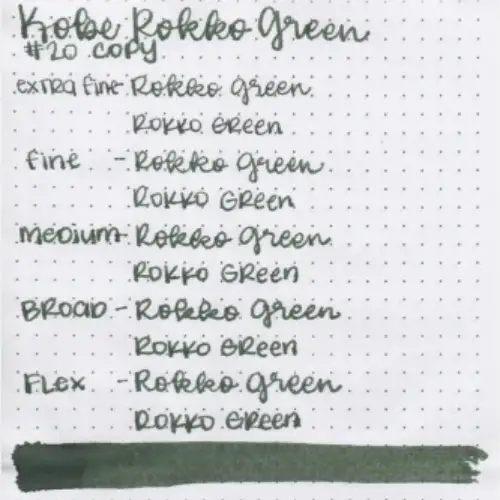 Kobe Rokko Green
#20 COPY
extra fine - Rokko Green
Rokko Green
fine - Rokko Green
Rokko Green
Medium - Rokko Green
Rokko Green
Broad - Rokko Green
Rokko Green
Flex - Rokko Green
Rokko Green